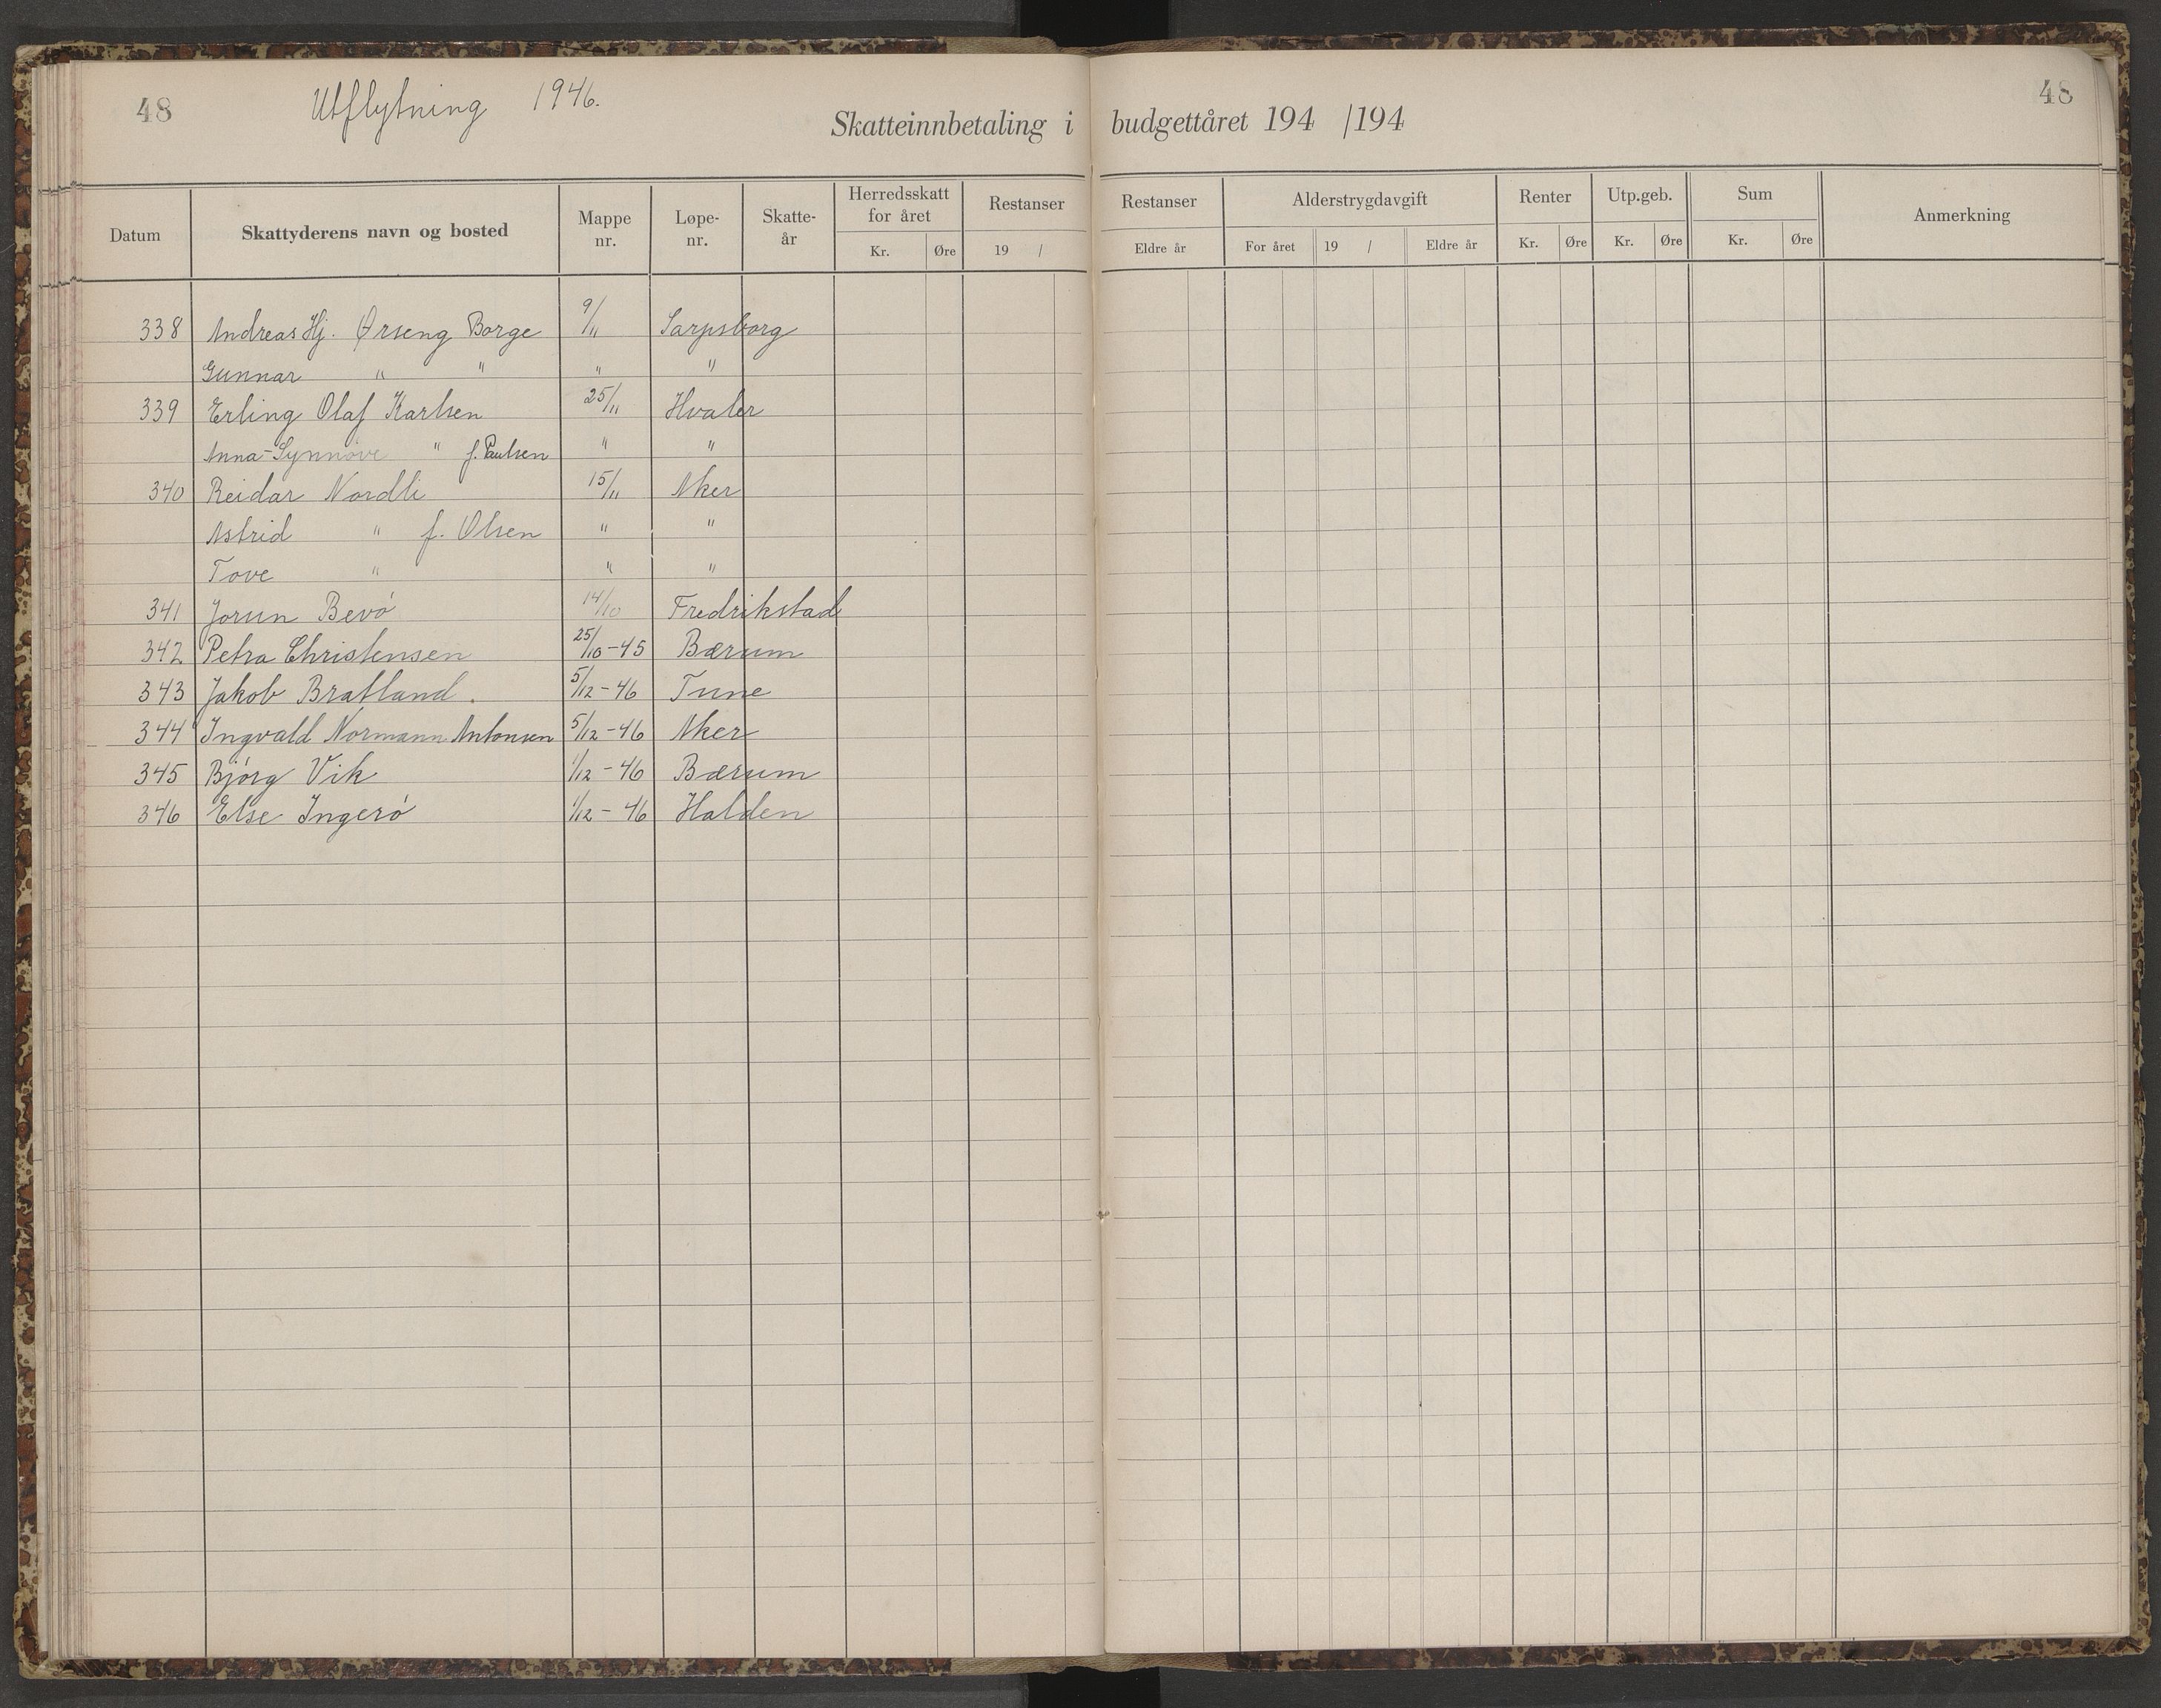 48 Utflytning 1946. 48
Skatteinnbetaling i budgettåret 194 /194
Datum Skattyderens navn og bosted Mappe nr. Løpe-nr. Skatte-år Herredsskatt for året Kr. Øre Restanser 19 / Restanser Eldre år Alderstrygdavgift For året 19 / Eldre år Renter Kr. Øre Utp.geb. Kr. Øre Sum Kr. Øre Anmerkning
338 Andreas Hj. Ørseng Borge 9/11 Sarpsborg
Gunnar " " " "
339 Erling Olaf Karlsen 25/11 Hvaler
Anna-Synnøve " f. Paulsen " "
340 Reidar Nordli 15/11 Aker
Astrid " f. Olsen " "
Tove " " "
341 Jorun Bevø 14/10 Fredrikstad
342 Petra Christensen 25/10-45 Bærum
343 Jakob Bratland. 5/12-46 Tune
344 Ingvald Normann Antonsen 5/12-46 Aker
345 Bjørg Vik 1/12-46 Bærum
346 Else Ingerø 1/12-46 Halden